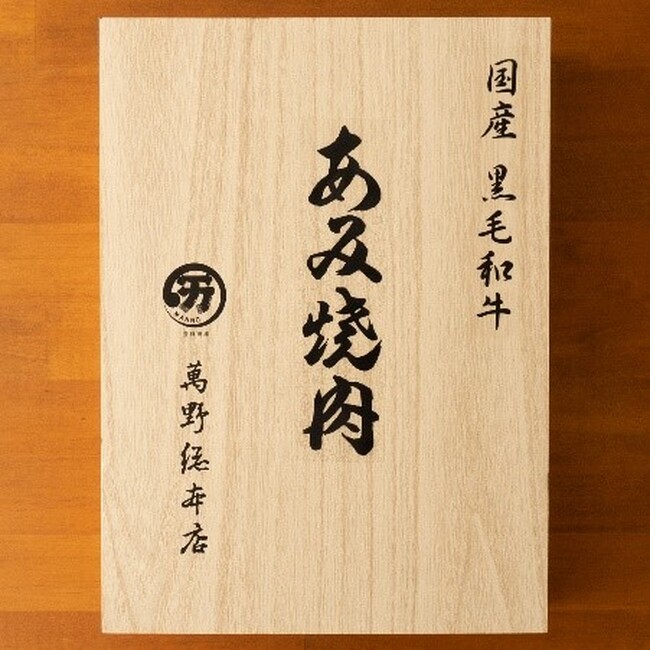 国産 黒毛和牛
あみ焼肉
MANNO
萬野総本店